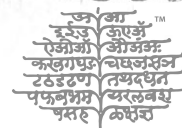 अ आ TM
इईउ ऊए
कखगघङ चछजझञ
टठडढण तथदधन
पफबभम यरलवश
षसह ळक्षज्ञ